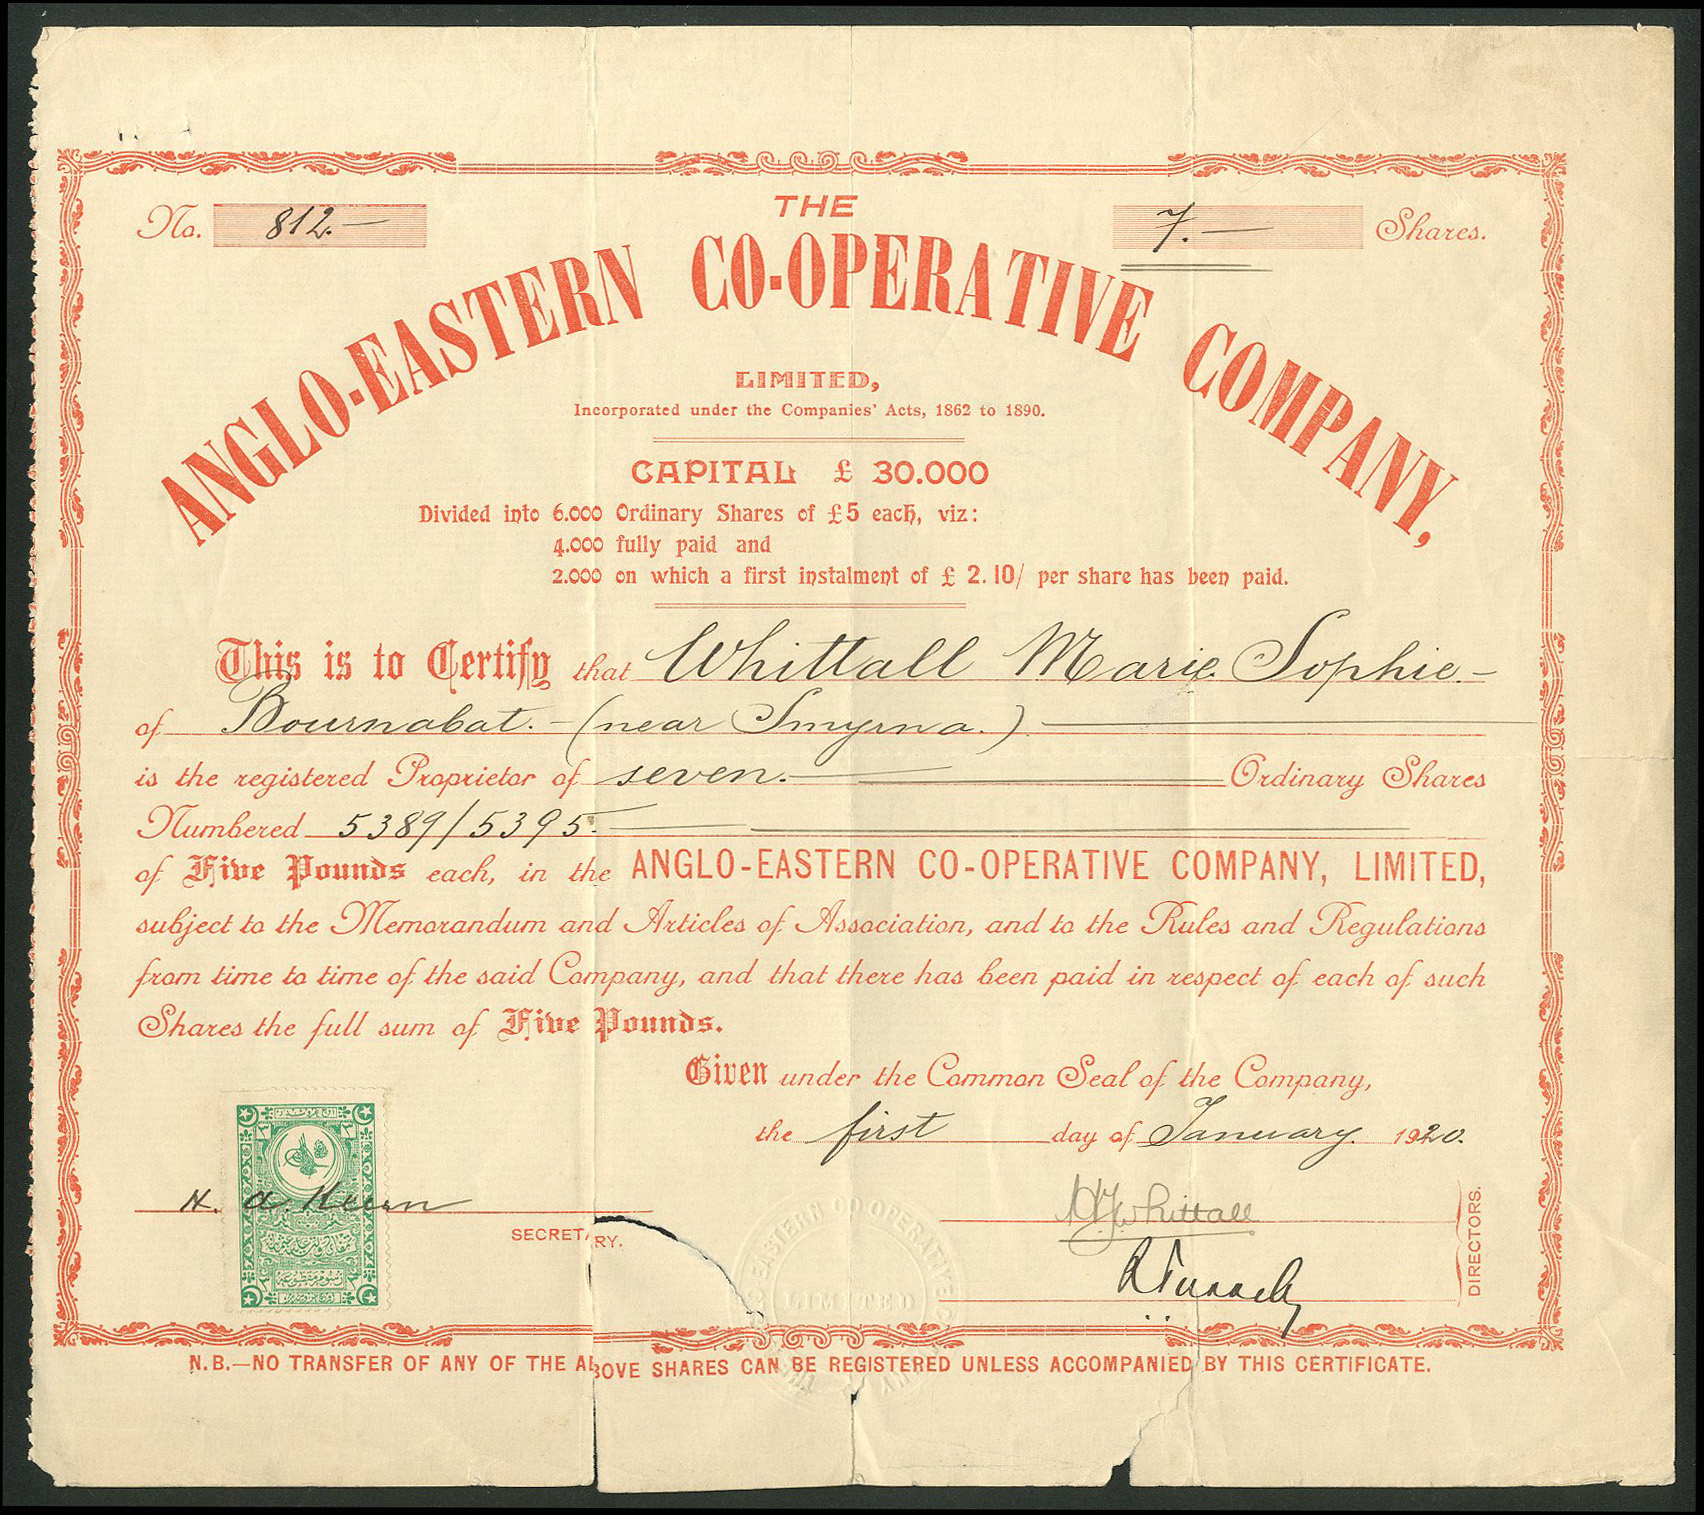 No. 812.—
THE
7.— Shares.
ANGLO-EASTERN CO-OPERATIVE COMPANY,
LIMITED,
Incorporated under the Companies' Acts, 1862 to 1890.
CAPITAL £ 30.000
Divided into 6.000 Ordinary Shares of £5 each, viz:
4.000 fully paid and
2.000 on which a first instalment of £ 2.10/ per share has been paid.
This is to Certify that Whittall Marie Sophie.—
of Bournabat.—(near Smyrna.)
is the registered Proprietor of seven.— Ordinary Shares
Numbered 5389/5395.—
of Five Pounds each, in the ANGLO-EASTERN CO-OPERATIVE COMPANY, LIMITED,
subject to the Memorandum and Articles of Association, and to the Rules and Regulations
from time to time of the said Company, and that there has been paid in respect of each of such
Shares the full sum of Five Pounds.
Given under the Common Seal of the Company,
the first day of January. 1920.
H. A.
Whittall
SECRETARY.
DIRECTORS.
EASTERN CO OPERATIVE
LIMITED
N.B.—NO TRANSFER OF ANY OF THE ABOVE SHARES CAN BE REGISTERED UNLESS ACCOMPANIED BY THIS CERTIFICATE.